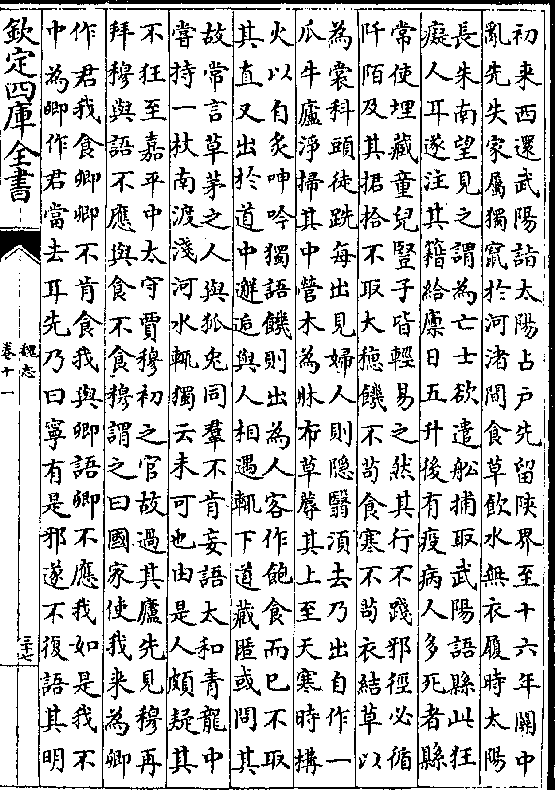 初来西還武陽詣太陽占戶先留陜界至十六年關中
亂先失家屬獨竄於河渚間食草飲水無衣履時太陽
長朱南望見之謂為亡士欲遣舩捕取武陽語縣此狂
癡人耳遂注其籍給廩日五升後有疫病人多死者縣
常使埋藏童兒豎子皆輕易之然其行不踐邪徑必循
阡陌及其捃拾不取大穂饑不苟食寒不苟衣結草以
為裳科頭徒跣每出見婦人則隠翳湏去乃出自作一
瓜牛廬淨掃其中營木為牀布草蓐其上至天寒時構
火以自炙呻吟獨語饑則出為人客作飽食而已不取
其直又出於道中邂逅與人相遇輒下道藏匿或問其
故常言草茅之人與狐兔同羣不肯妄語太和青龍中
嘗持一杖南渡淺河水輒獨云未可也由是人頗疑其
不狂至嘉平中太守賈穆初之官故過其廬先見穆再
拜穆與語不應與食不食穆謂之曰國家使我来為卿
作君我食卿卿不肯食我與卿語卿不應我如是我不
中為卿作君當去耳先乃曰寧有是邪遂不復語其明
欽定四庫全書
魏志
卷十一